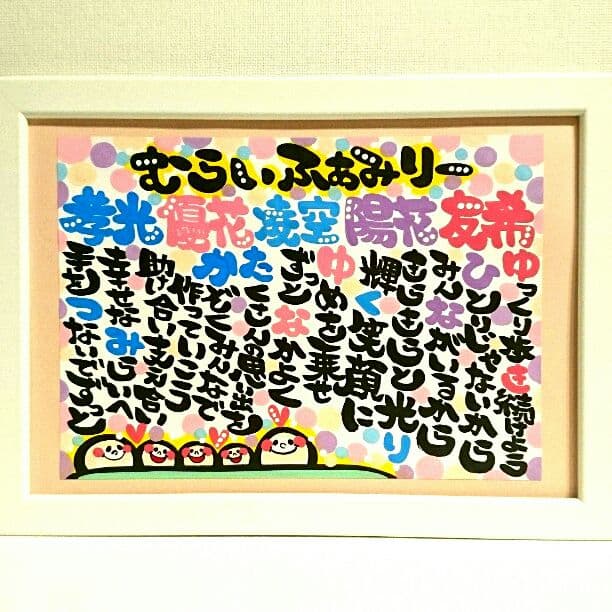 むらいふぁみりー
孝光 優花 凌空 陽花 友希
ゆっくり歩き続けよう
ひとりじゃないから
みんながいるから
きらきらと光り
輝く笑顔に
ゆめを乗せ
ずっとなかよく
たくさんの思い出を
かぞくみんなで
作っていこう
助け合い支え合い
幸せなみらいへ
手をつないでずっと